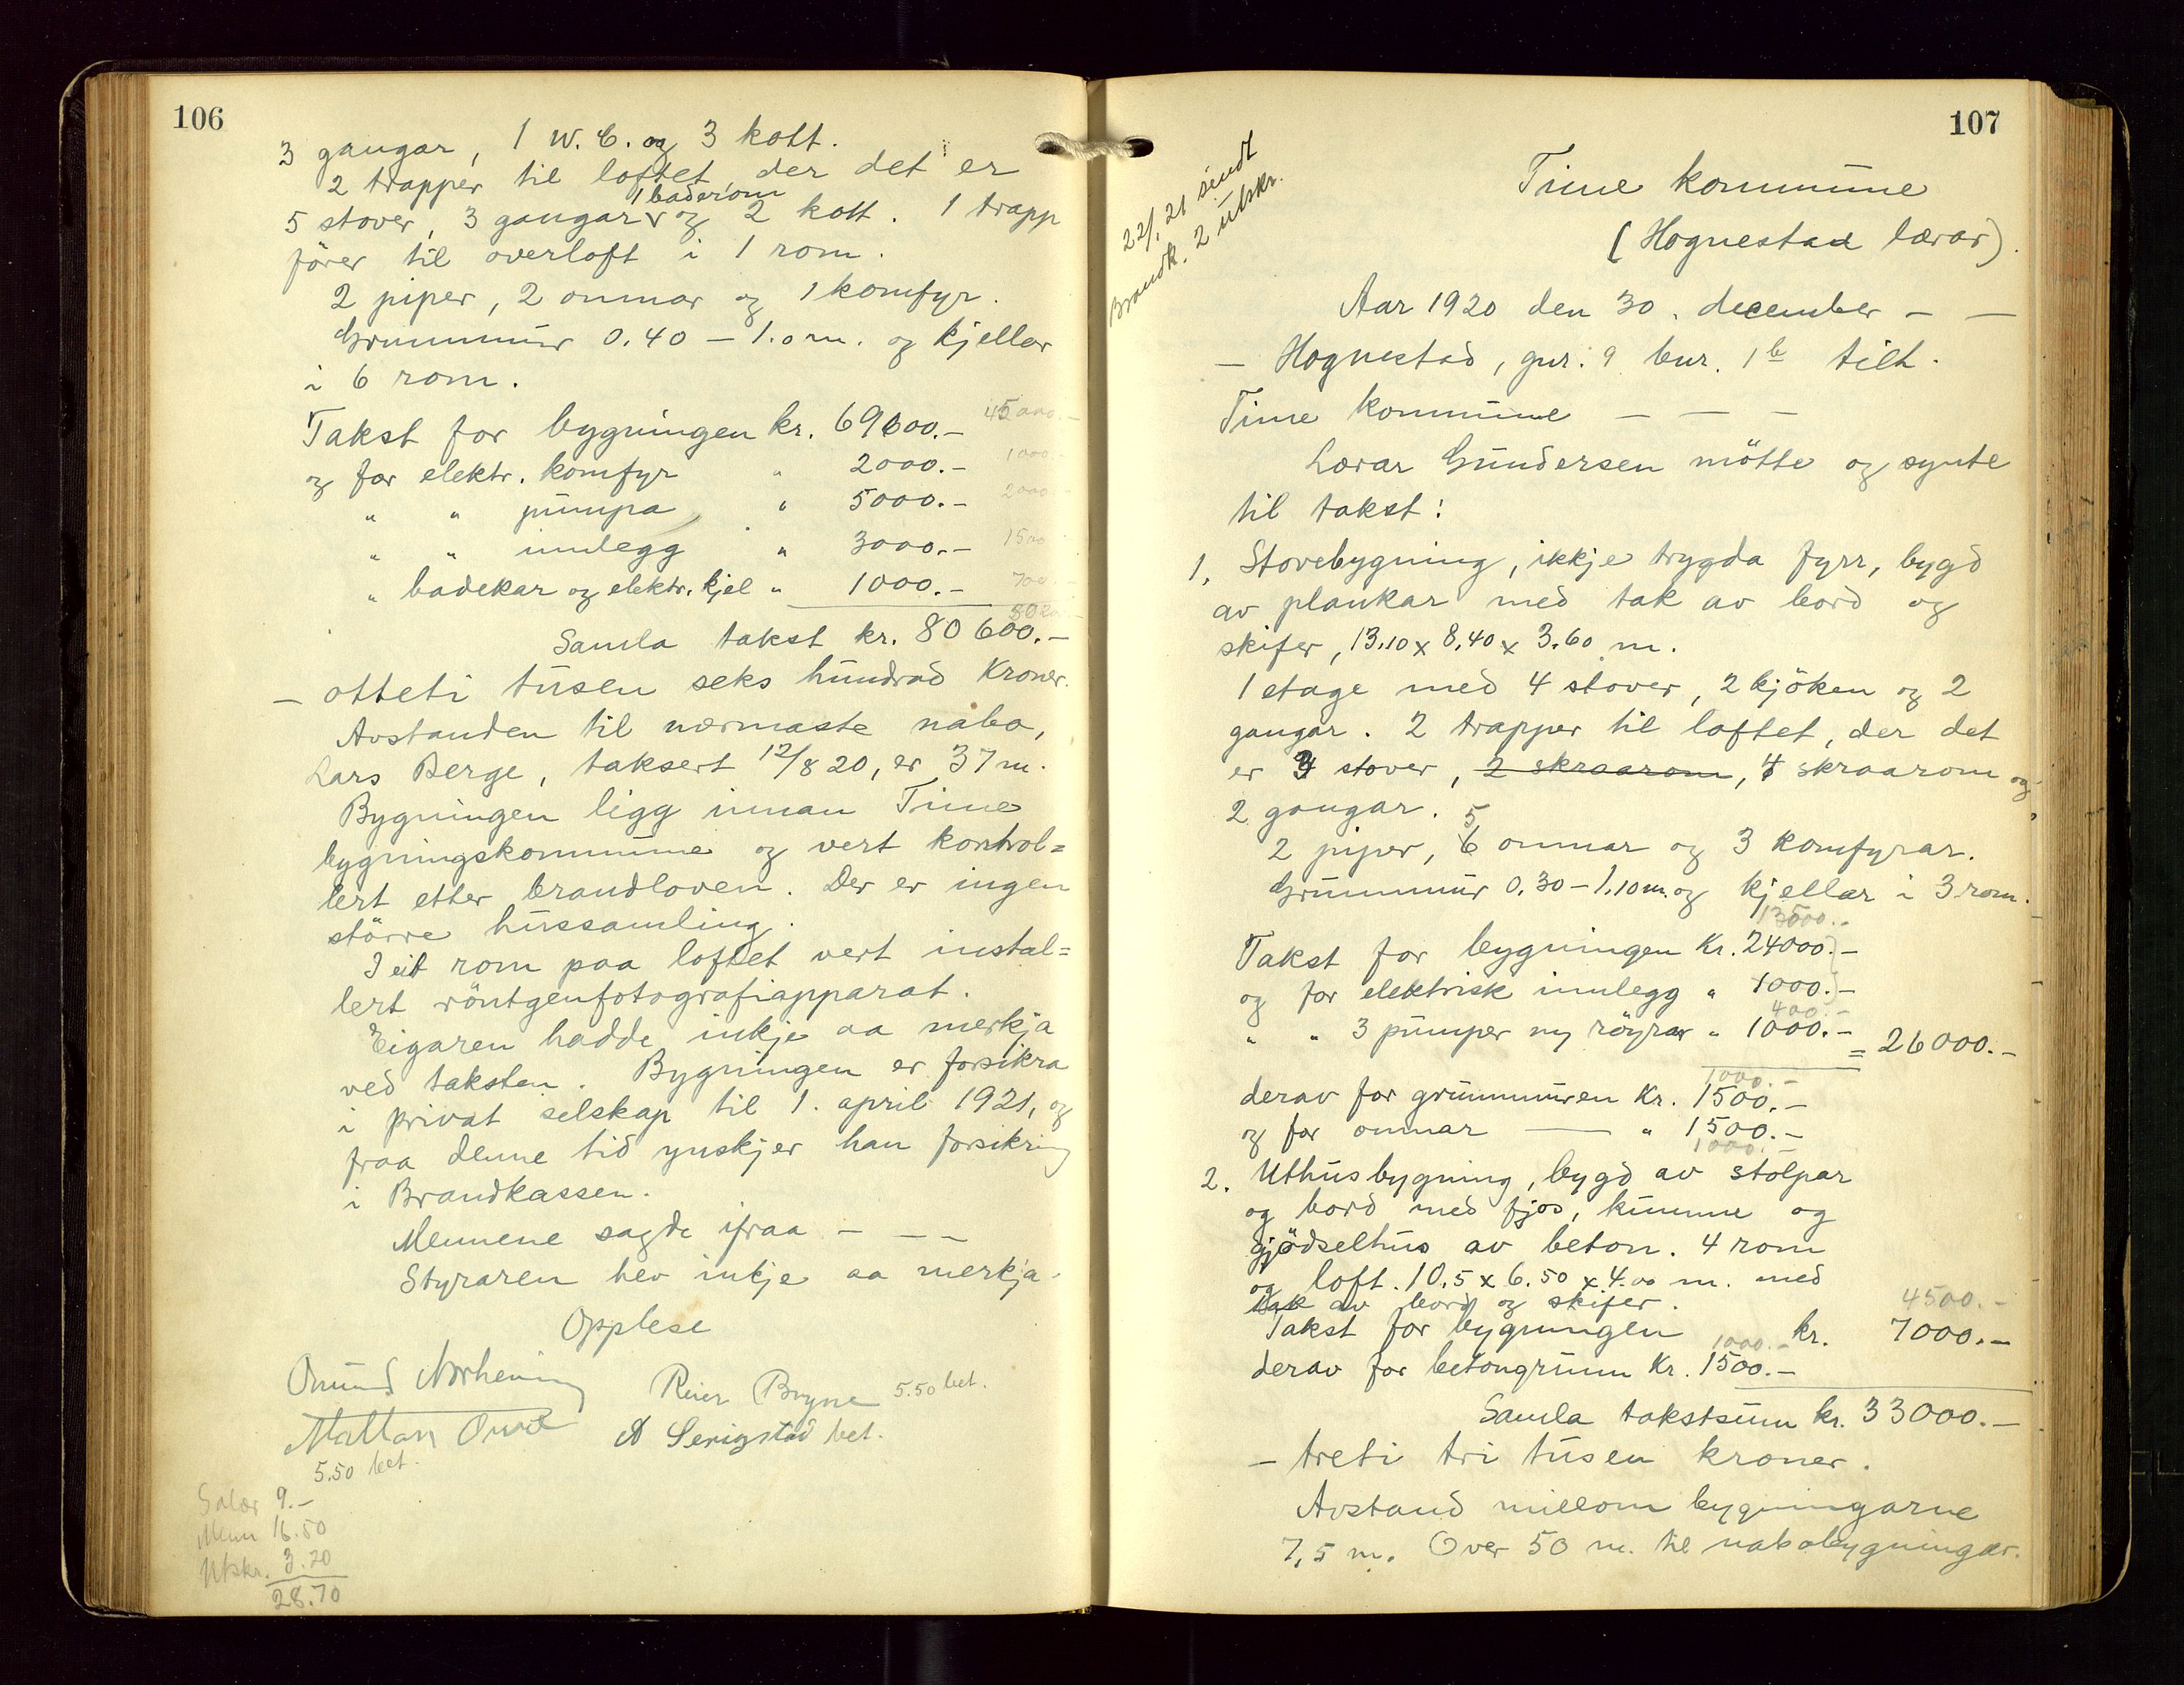 106
3 gangar, 1 W.C. og 3 kott.
2 trapper til loftet, der det er
1 baderom
5 stover, 3 gangar og 2 kott. 1 trapp
förer til overloft i 1 rom.
2 piper, 2 omnar og 1 komfyr.
Grunnmur 0.40 – 1.0 m. og kjellar
i 6 rom.
Takst for bygningen kr. 69600.– 45000.–
og for elektr. komfyr " 2000.– 1000.–
" " pumpa " 5000.– 2000.–
" " innlegg " 3000.– 1500
" badekar og elektr. kjel " 1000.– 700.–
Samla takst kr. 80600.–
– otteti tusen seks hundrad Kroner.
Avstanden til nærmaste nabo,
Lars Berge, taksert 12/8 20, er 37 m.
Bygningen ligg innan Time
bygningskommune og vert kontrol=
lert etter brandloven. Der er ingen
större hussamling.
I eit rom paa loftet vert instal=
lert röntgenfotografiapparat.
Eigaren hadde inkje aa merkja
ved taksten. Bygningen er forsikra
i privat selskap til 1. april 1921, og
fraa denne tid ynskjer han forsikring
i Brandkassen.
Mennene sagde ifraa – – –
Styraren hev inkje aa merkja.
Opplese
Omund Norheim
Reier Bryne 5.50 bet.
A Serigstad bet.
5.50 bet.
Salær 9.–
Menn 16.50
Utskr. 3.20
28.70
107
22/1 21 sendt
Brandk. 2 utskr.
Time kommune
(Hognestad lærar).
Aar 1920 den 30. december – –
– Hognestad, gnr. 9 bnr. 1b tilh.
Time kommune – – –
Lærar Gundersen mötte og synte
til takst:
1. Stovebygning, ikkje trygda fyrr, bygd
av plankar med tak av bord og
skifer, 13.10 x 8.40 x 3.60 m.
1 etage med 4 stover, 2 kjöken og 2
gangar. 2 trapper til loftet, der det
er 4 stover, 2 skraarom, 4 skraarom og
2 gangar. 5
2 piper, 6 omnar og 3 komfyrar.
Grunnmur 0.30 – 1.10 m. og kjellar i 3 rom.
13500.–
Takst for bygningen Kr. 24000.–
og for elektrisk innlegg " 1000.–
400.–
" " 3 pumper m/ röyrar " 1000.– = 26000.–
1000.–
derav for grunnmuren Kr. 1500.–
og for omnar — " 1500.–
1000.–
2. Uthusbygning, bygd av stolpar
og bord med fjos, kumme og
gjödselhus av beton. 4 rom
og loft. 10.5 x 6.50 x 4.00 m. med
tak av bord og skifer.
4500.–
Takst for bygningen kr. 7000.–
1000.–
derav for betongrunn Kr. 1500.–
Samla takstsum kr. 33000.–
– treti tri tusen kroner.
Avstand millom bygningarne
7,5 m. Over 50 m. til nabobygningar.